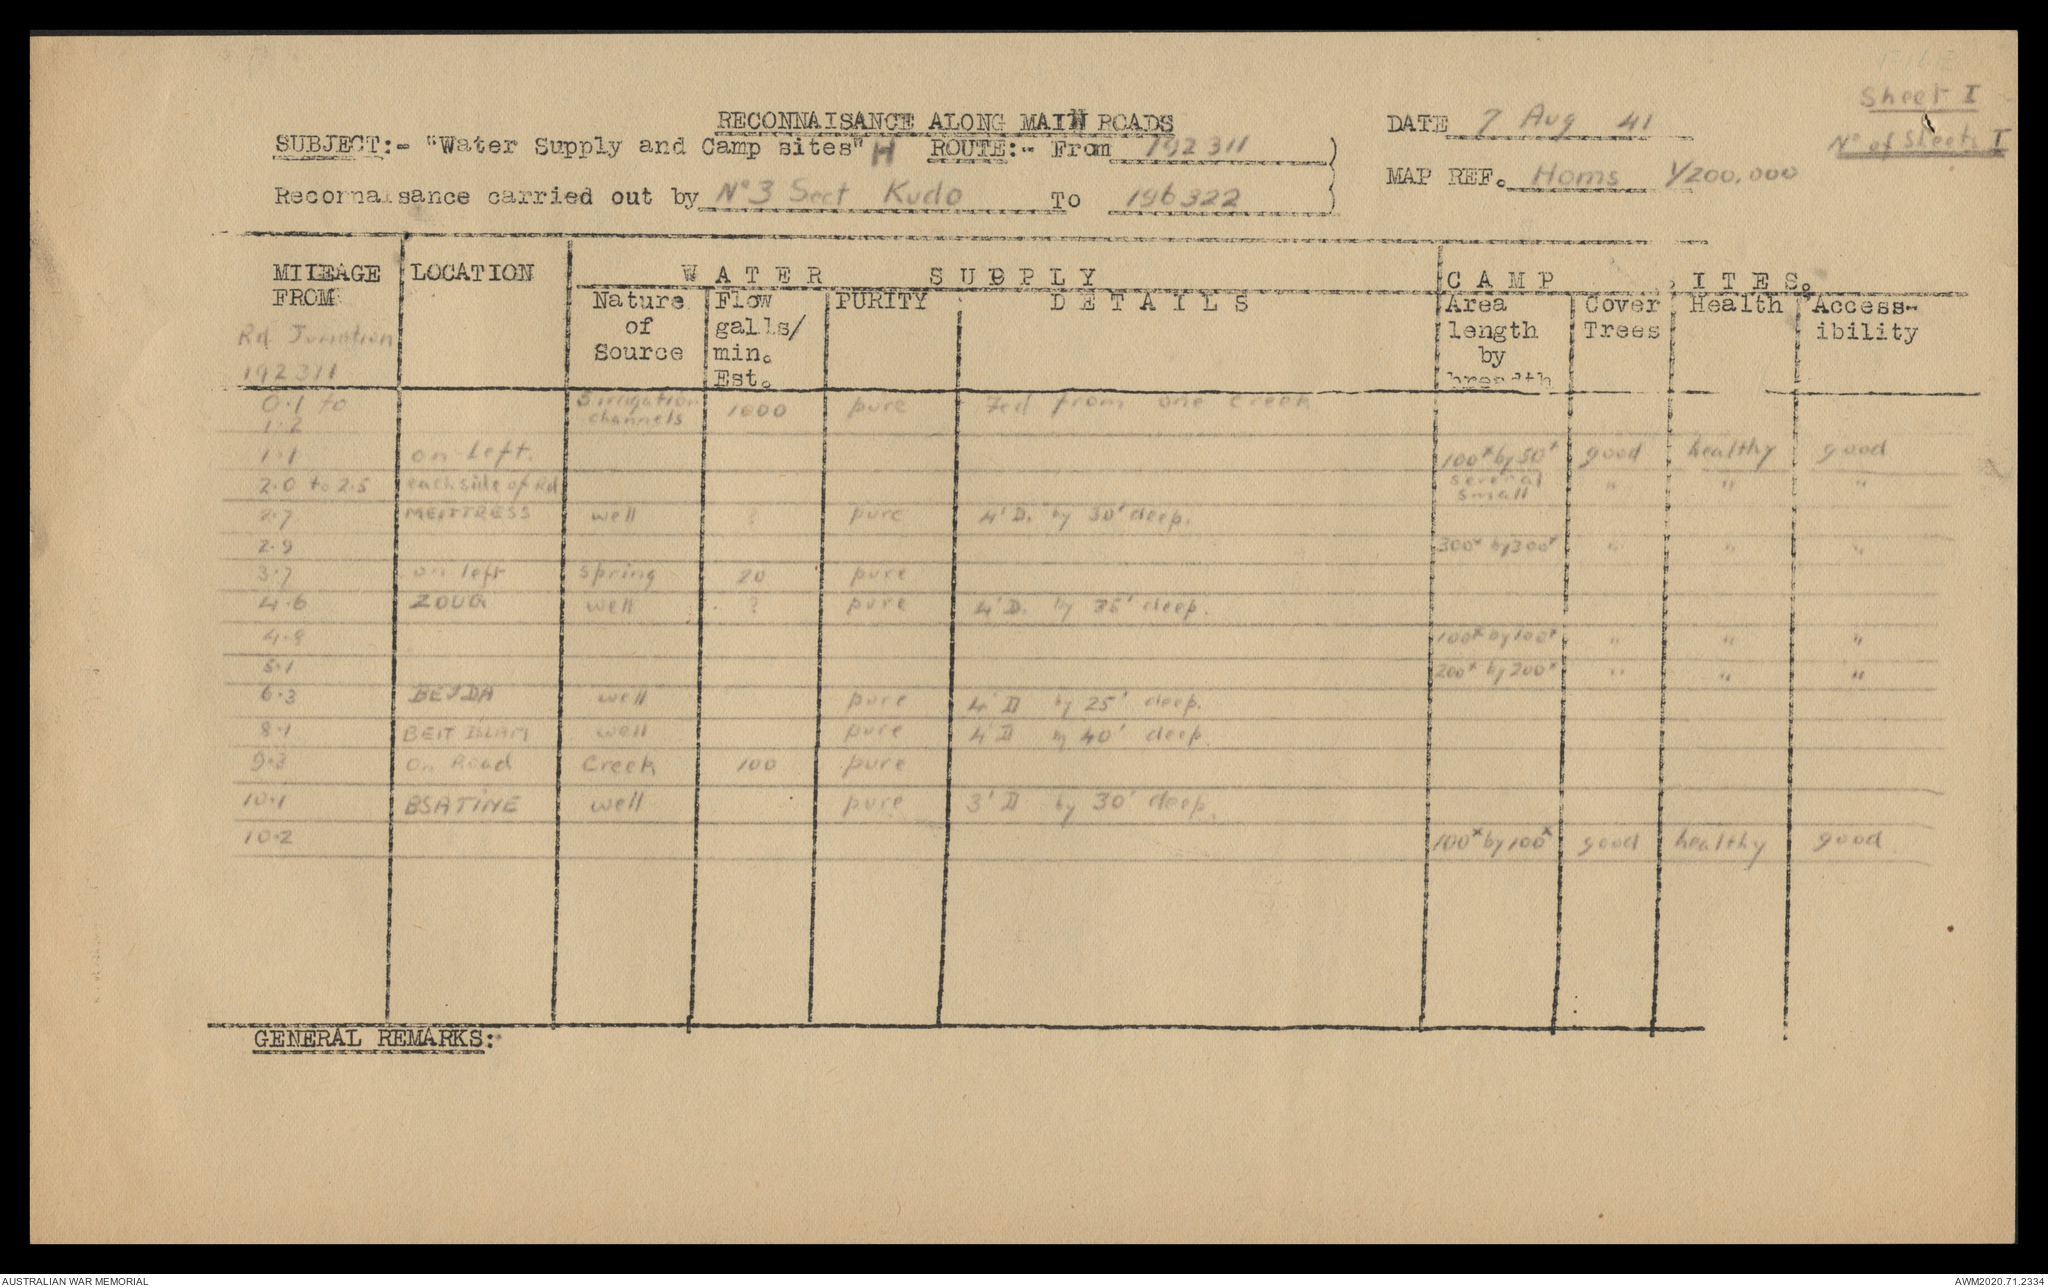 Sheet I
No of Sheets I
RECONNAISANCE ALONG MAIN ROADS
DATE 7 Aug 41
SUBJECT:- "Water Supply and Camp sites" H ROUTE:- From 192311
MAP REF. Homs 1/200,000
Reconnaisance carried out by No 3 Sect Kudo To 196322
MILEAGE LOCATION WATER SUPPLY CAMP SITES.
FROM Nature Flow PURITY DETAILS Area Cover Health Access-
Rd Junction of galls/ length Trees ibility
192311 Source min. by
Est. breadth
0.1 to 5 irrigation 1000 pure Fed from one creek
1.2 channels
1.1 on left. 100x by 50x good healthy good
2.0 to 2.5 each side of Rd several small " " "
2.7 MEITTRESS well ? pure 4' D. by 30' deep.
2.9 300x by 300x " " "
3.7 on left spring 20 pure
4.6 ZOUG well ? pure 4' D. by 35' deep.
4.8 100x by 100x " " "
5.1 200x by 200x " " "
6.3 BEJDA well pure 4' D by 25' deep.
8.1 BEIT well pure 4' D by 40' deep
9.3 On Road Creek 100 pure
10.1 BSATINE well pure 3' D by 30' deep.
10.2 100x by 100x good healthy good
GENERAL REMARKS:
AUSTRALIAN WAR MEMORIAL
AWM2020.71.2334